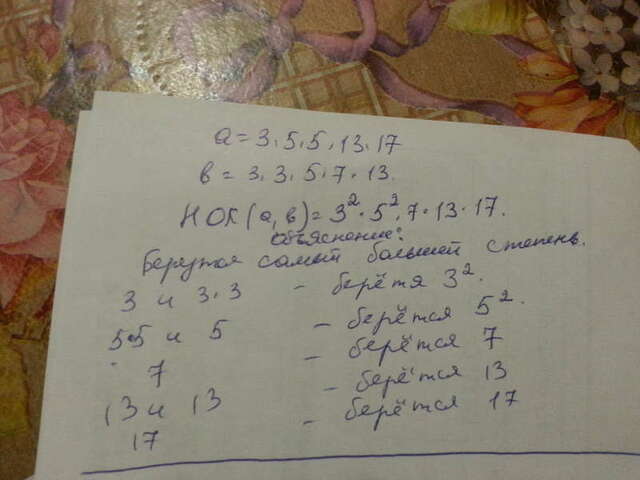 a = 3 · 5 · 5 · 13 · 17
в = 3 · 3 · 5 · 7 · 13.
НОК(a, в) = 3² · 5² · 7 · 13 · 17.
объяснение:
Берутся самый большей степень.
3 и 3·3 – берётя 3².
5·5 и 5 – берётся 5².
7 – берётся 7
13 и 13 – берётся 13
17 – берётся 17